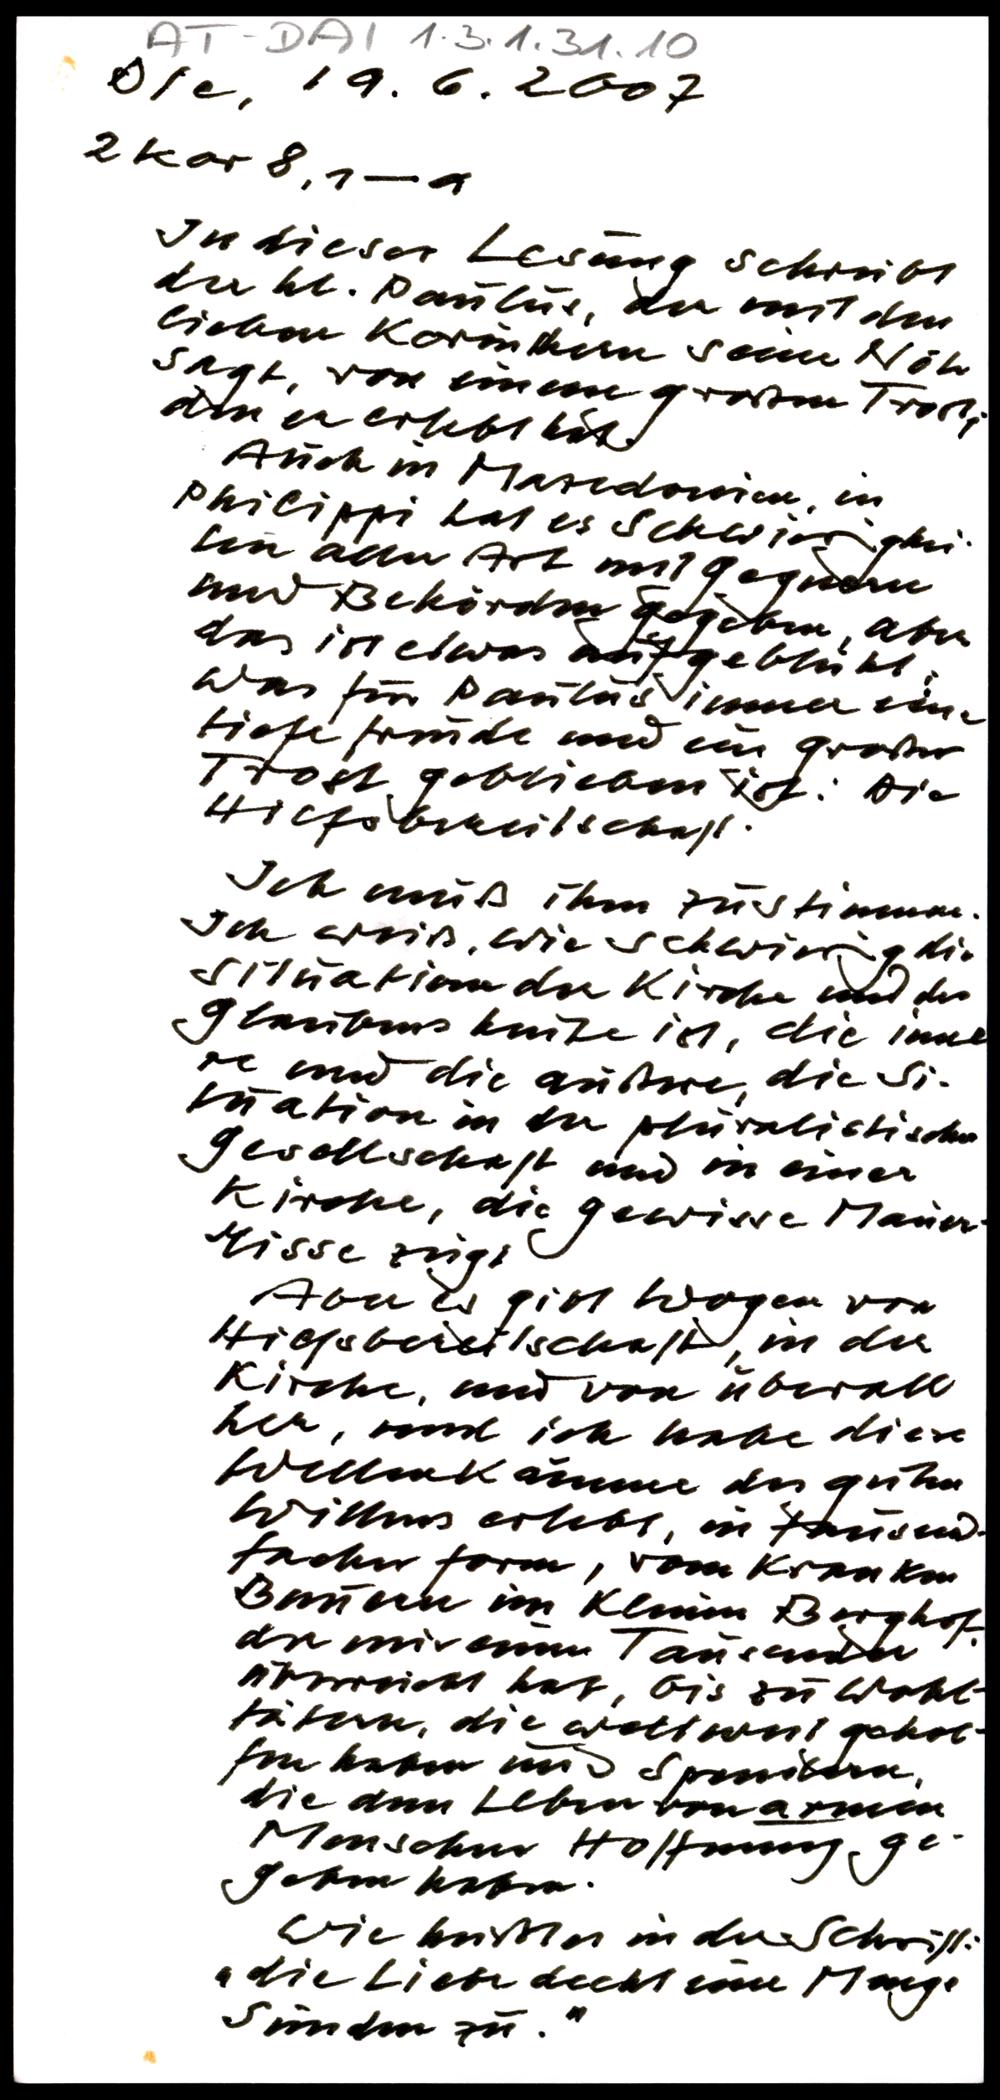 AT-DAI 1.3.1.31.10
Die, 19. 6. 2007
2 Kor 8, 1-9
In dieser Lesung schreibt
der hl. Paulus, der mit den
lieben Korinthern seine Nöte
sagt, von einem großen Trost,
den er erlebt hat.
Auch in Mazedonien, in
Philippi hat es Schwierigkei-
ten aller Art mit Gegnern
und Behörden gegeben, aber
das ist etwas aufgeblüht,
was für Paulus immer eine
tiefe Freude und ein großer
Trost geblieben ist: Die
Hilfsbereitschaft.
Ich muß ihm zustimmen.
Ich weiß, wie schwierig die
Situation der Kirche und des
Glaubens heute ist, die inne
re und die äußere, die Si-
tuation in der pluralistischen
Gesellschaft und in einer
Kirche, die gewisse Mauer-
risse zeigt
Aber es gibt Wogen von
Hilfsbereitschaft, in der
Kirche, und von überall
her, und ich habe diese
Wellenkämme des guten
Willens erlebt, in tausend-
facher Form, vom kranken
Bauern im kleinen Berghof,
der mir einen Tausender
überreicht hat, bis zu Wohl-
tätern, die weltweit gehol-
fen haben und Spendern,
die dem Leben von armen
Menschen Hoffnung ge-
geben haben.
Wie heißt es in der Schrift:
"die Liebe deckt eine Menge
Sünden zu."